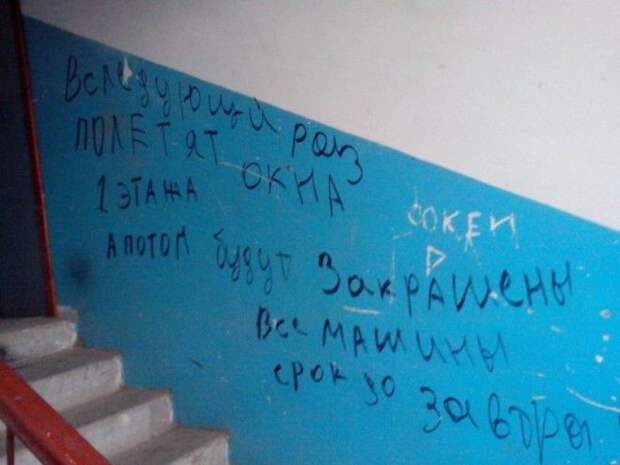 Вследующий раз
полетят окна
1 этажа
а потом будут закрашены
все машины
срок до завтра